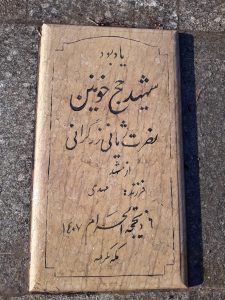 یادبود
شهید حج خونین
نصرت ثانی زرگرانی
از مشهد
فرزند: مهدی
۶ ذیحجة الحرام ۱۴۰۷
مکه مکرمه